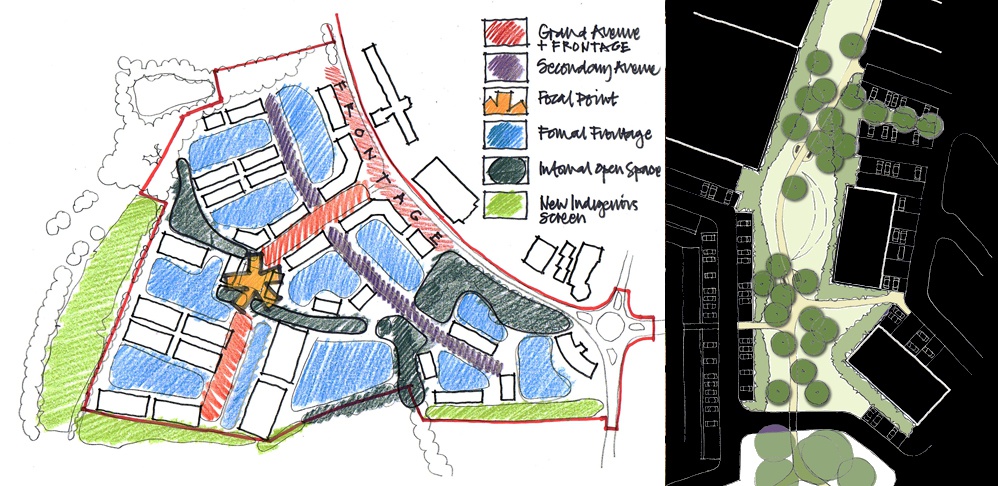 Grand Avenue
+ FRONTAGE
Secondary Avenue
Focal Point
Formal Frontage
Internal Open Space
New Indigenous
Screen
FRONTAGE